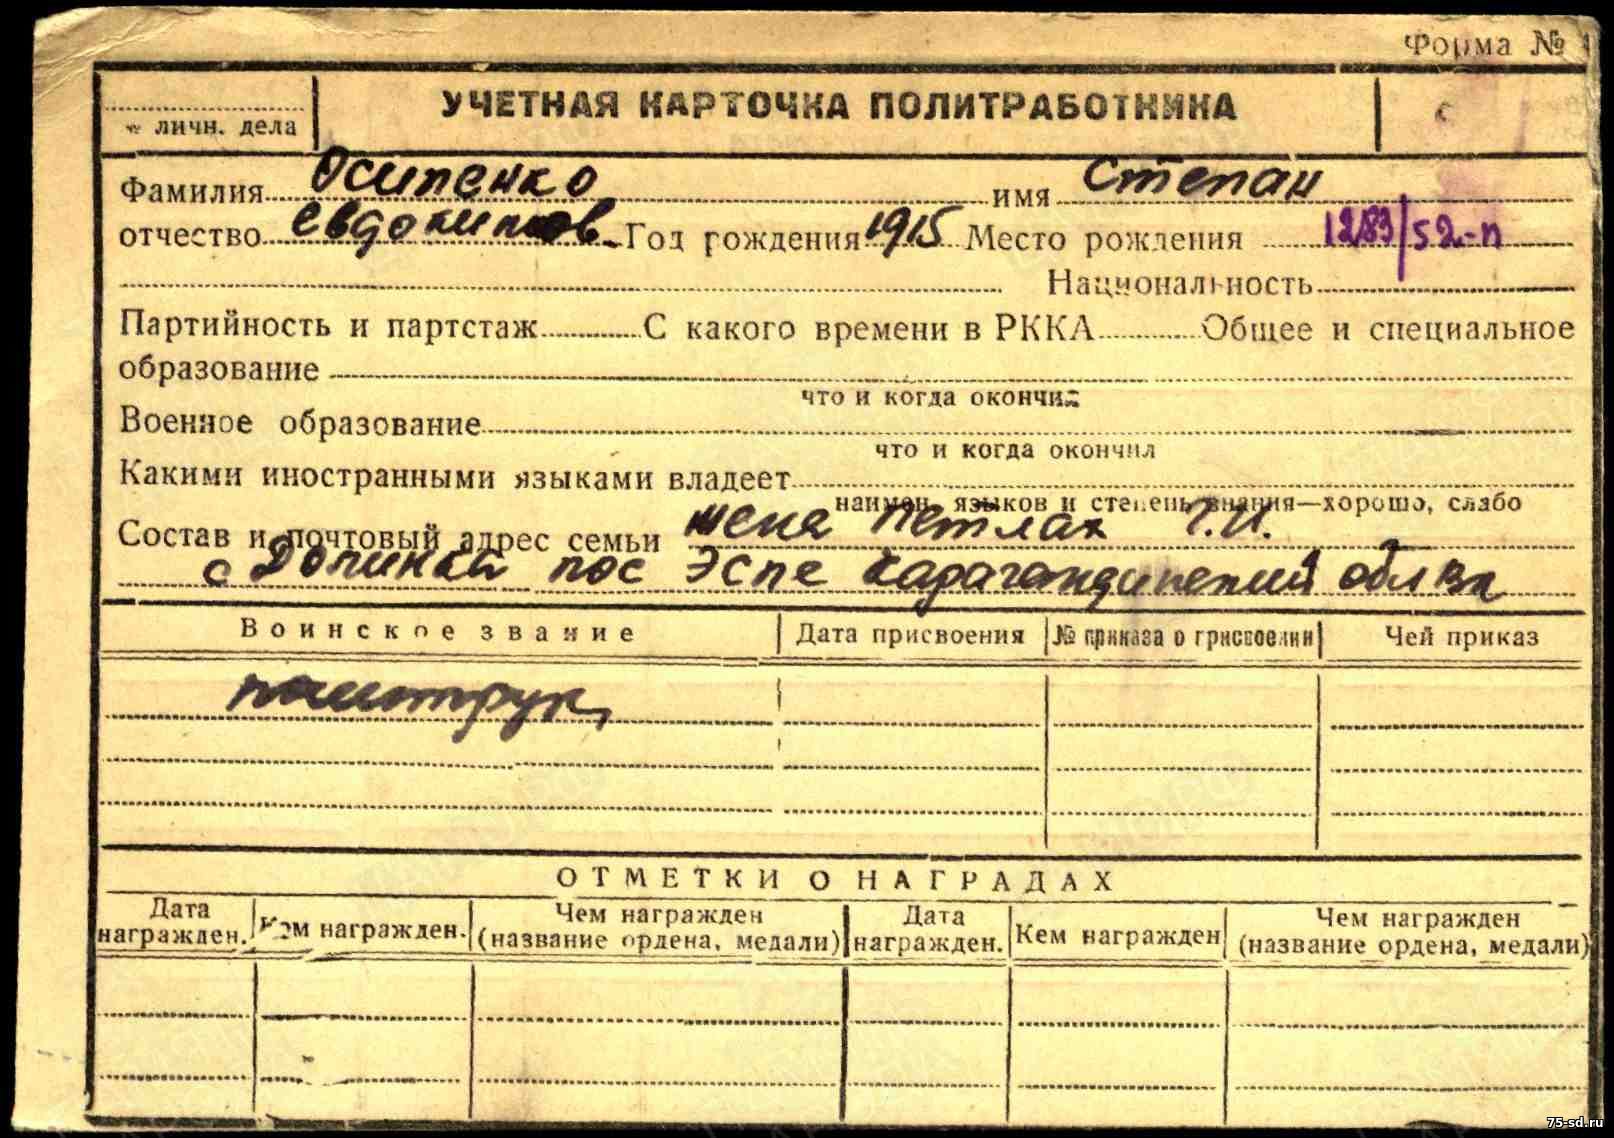 Форма №
УЧЕТНАЯ КАРТОЧКА ПОЛИТРАБОТНИКА
личн. дела
Фамилия Осипенко имя Степан
отчество Евдокимов Год рождения 1915 Место рождения 1283/52-п
Национальность
Партийность и партстаж С какого времени в РККА Общее и специальное
образование
что и когда окончил
Военное образование
что и когда окончил
Какими иностранными языками владеет
наимен. языков и степень знания—хорошо, слабо
Состав и почтовый адрес семьи жена Петлах Г.И.
с Долинка пос Эспе Карагандинской обл
Воинское звание Дата присвоения № приказа о присвоении Чей приказ
политрук
ОТМЕТКИ О НАГРАДАХ
Дата награжден. Кем награжден. Чем награжден (название ордена, медали) Дата награжден. Кем награжден Чем награжден (название ордена, медали)
75-sd.ru